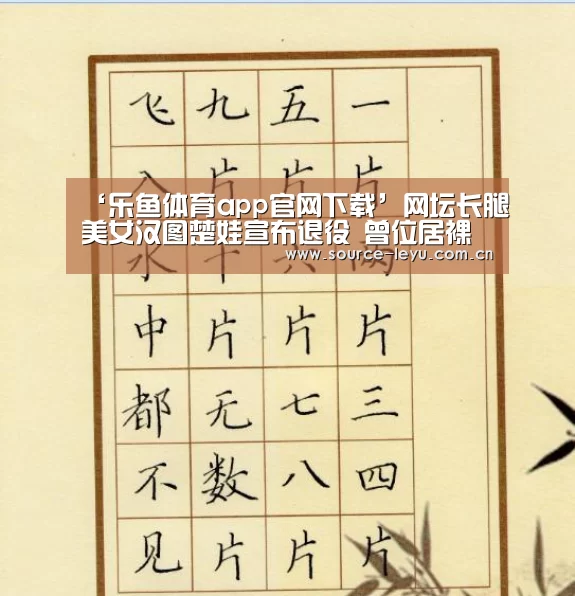 ‘乐鱼体育app官网下载’网坛长腿
美女汉图楚娃宣布退役 曾位居裸
www.source-leyu.com.cn
一片两片三四片
五片六片七八片
九片十片无数片
飞入水中都不见